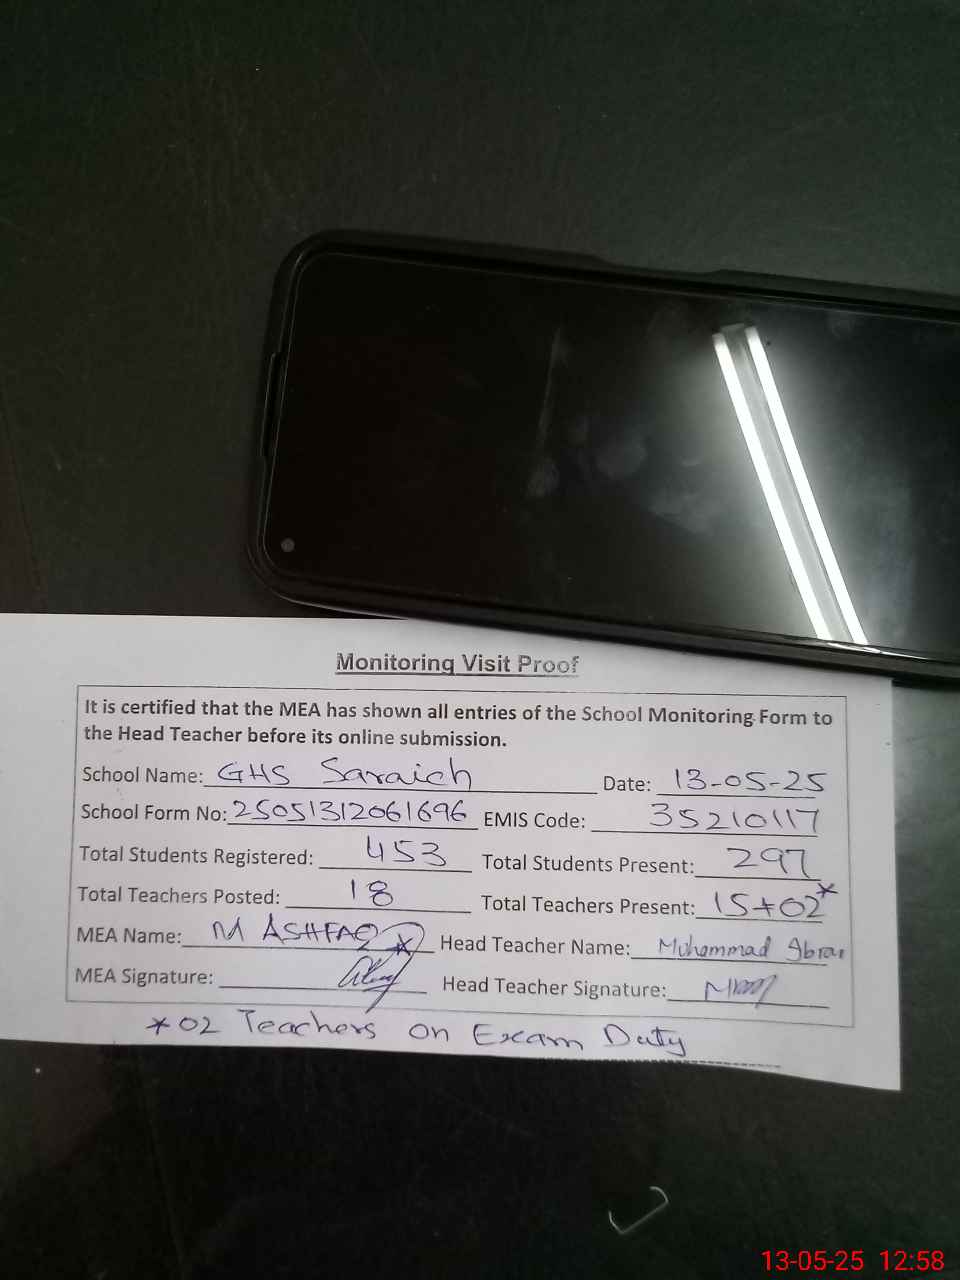 Monitoring Visit Proof
It is certified that the MEA has shown all entries of the School Monitoring Form to
the Head Teacher before its online submission.
School Name: GHS Saraich Date: 13-05-25
School Form No: 25051312061696 EMIS Code: 35210117
Total Students Registered: 453 Total Students Present: 297
Total Teachers Posted: 18 Total Teachers Present: 15+02*
MEA Name: M ASHFAQ Head Teacher Name: Muhammad Abrar
MEA Signature: Head Teacher Signature:
*02 Teachers on Exam Duty
13-05-25 12:58